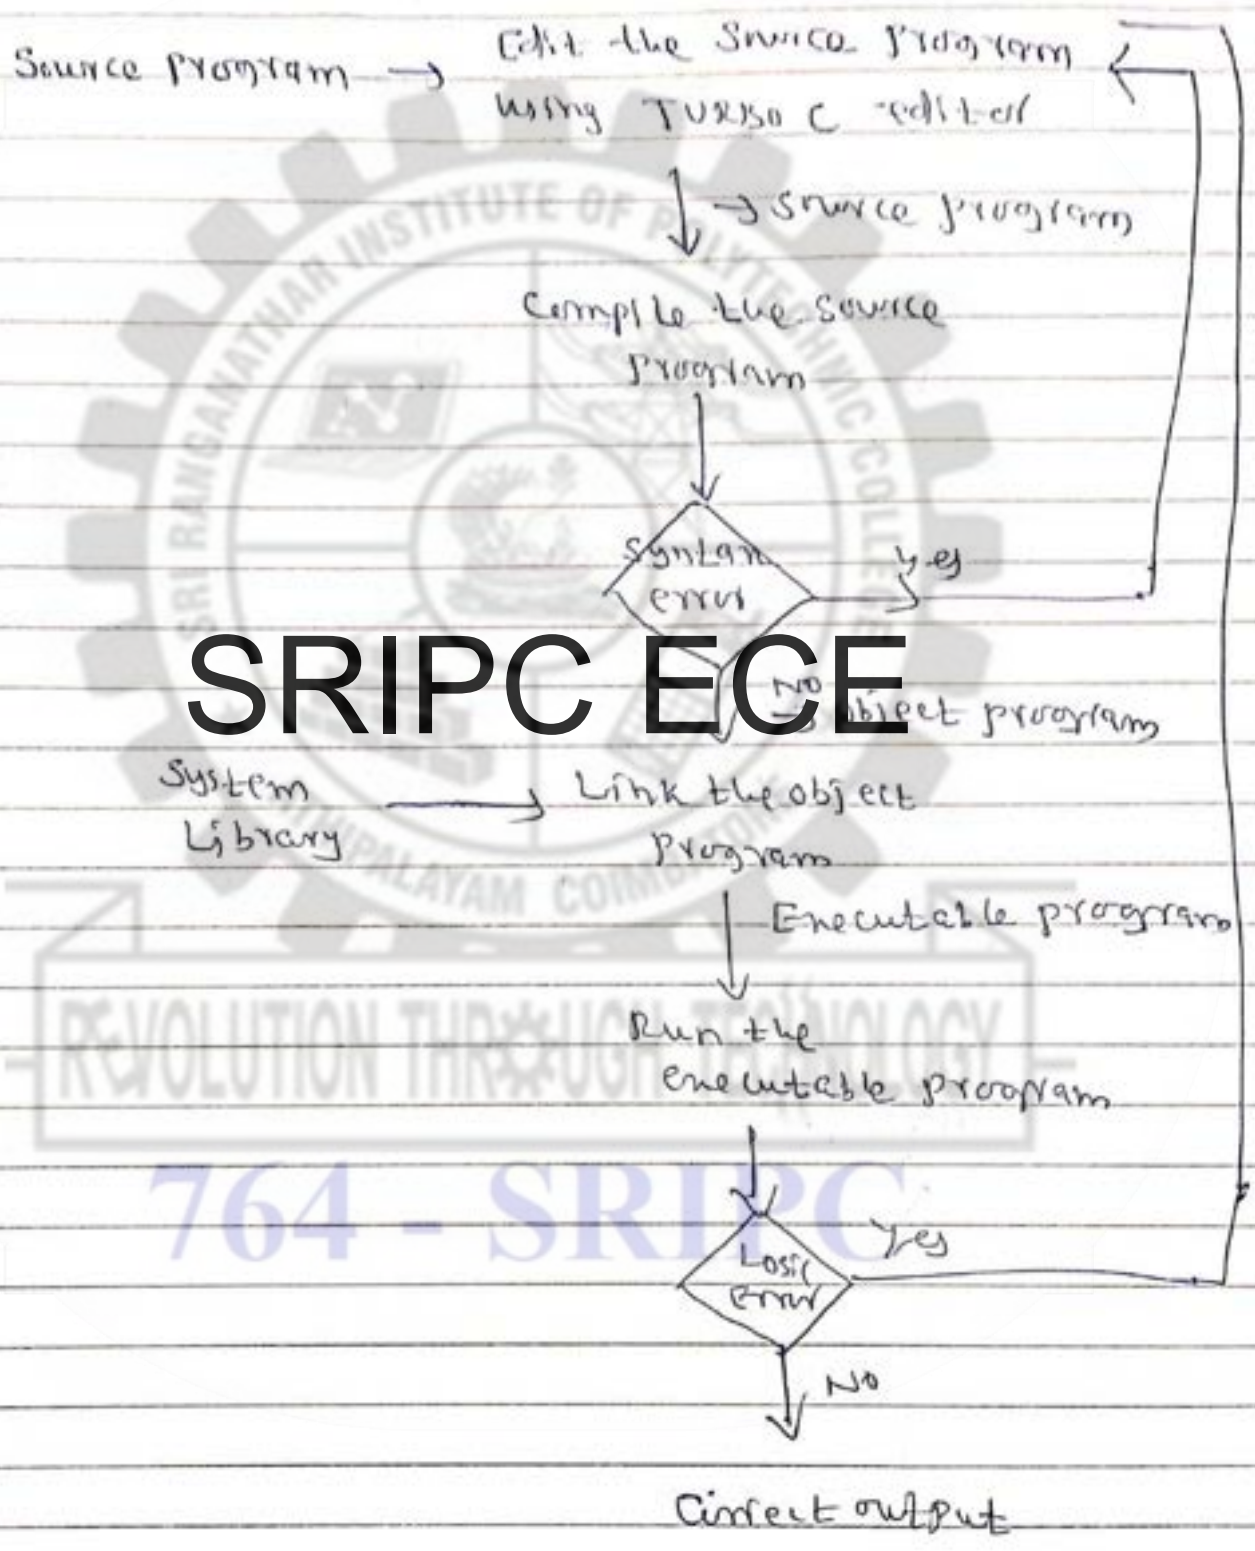 Source program → Edit the Source program
using TURBO C editor
→ Source program
Compile the Source
program
Syntax
error
Yes
No
→ object program
SRIPC ECE
System
Library
Link the object
program
Executable program
Run the
executable program
Logic
error
Yes
No
Correct output
SRI RANGANATHAR INSTITUTE OF POLYTECHNIC COLLEGE
COIMBATORE
REVOLUTION THROUGH TECHNOLOGY
764 - SRIPC